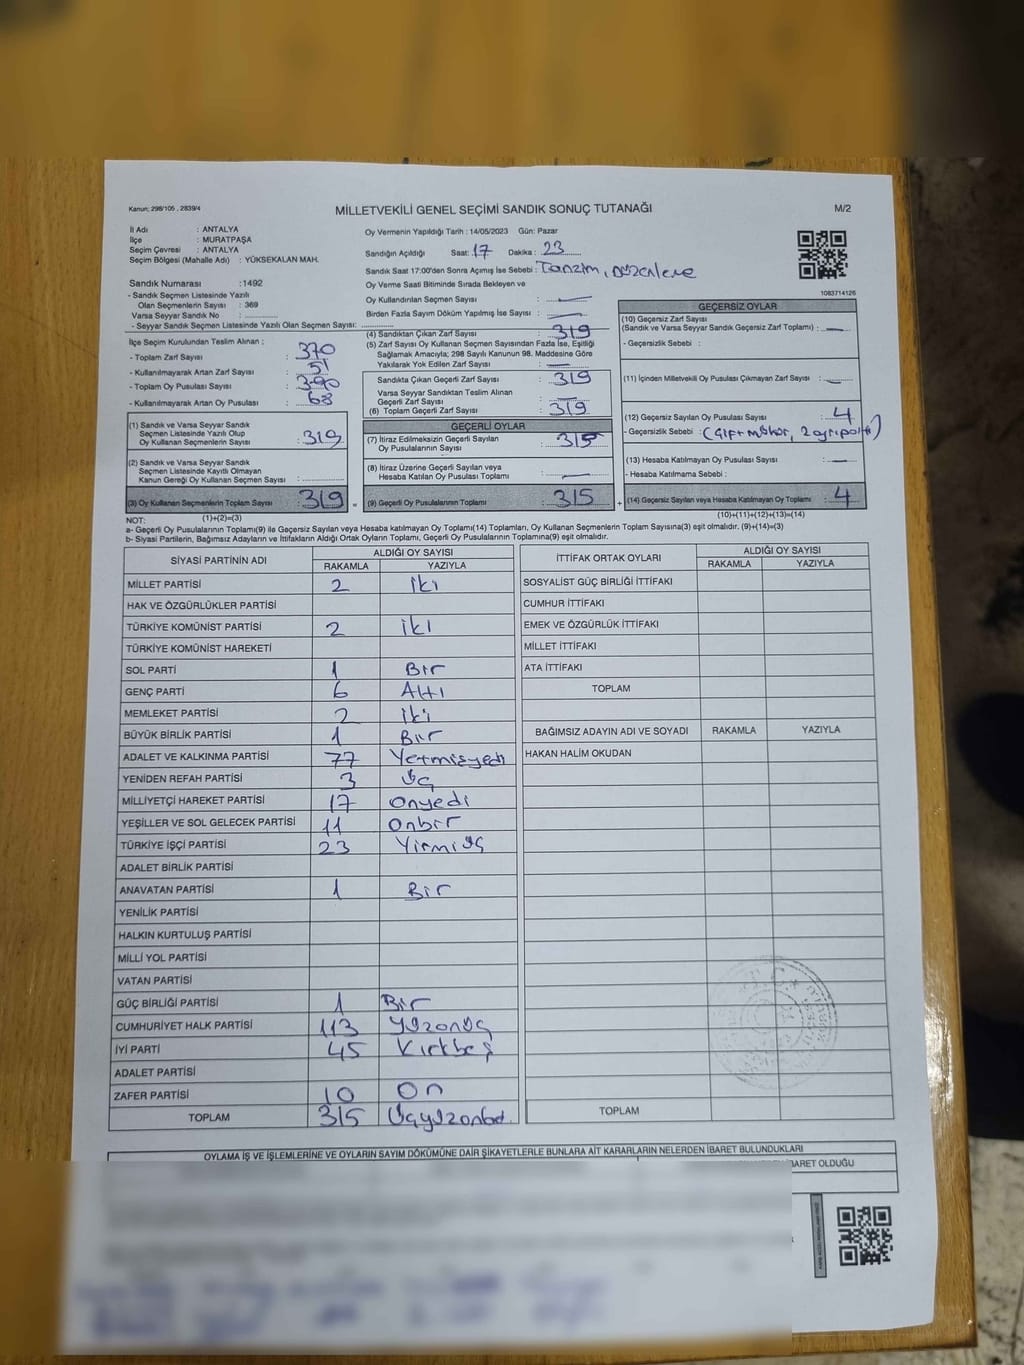 Kanun; 298/105 , 2839/4
MİLLETVEKİLİ GENEL SEÇİMİ SANDIK SONUÇ TUTANAĞI
M/2
İl Adı : ANTALYA
İlçe : MURATPAŞA
Seçim Çevresi : ANTALYA
Seçim Bölgesi (Mahalle Adı) : YÜKSEKALAN MAH.
Oy Vermenin Yapıldığı Tarih : 14/05/2023 Gün: Pazar
Sandığın Açıldığı Saat: 17 Dakika : 23
Sandık Saat 17:00'den Sonra Açımış İse Sebebi : Tanzim, Düzenleme
Oy Verme Saati Bitiminde Sırada Bekleyen ve
Oy Kullandırılan Seçmen Sayısı : —
Birden Fazla Sayım Döküm Yapılmış İse Sayısı : —
1083714126
Sandık Numarası :1492
- Sandık Seçmen Listesinde Yazılı
Olan Seçmenlerin Sayısı : 369
Varsa Seyyar Sandık No :
- Seyyar Sandık Seçmen Listesinde Yazılı Olan Seçmen Sayısı:
İlçe Seçim Kurulundan Teslim Alınan ;
- Toplam Zarf Sayısı : 370
- Kullanılmayarak Artan Zarf Sayısı : 51
- Toplam Oy Pusulası Sayısı :
- Kullanılmayarak Artan Oy Pusulası : 68
(1) Sandık ve Varsa Seyyar Sandık
Seçmen Listesinde Yazılı Olup
Oy Kullanan Seçmenlerin Sayısı : 319
(2) Sandık ve Varsa Seyyar Sandık
Seçmen Listesinde Kayıtlı Olmayan
Kanun Gereği Oy Kullanan Seçmen Sayısı :
(3) Oy Kullanan Seçmenlerin Toplam Sayısı : 319
(1)+(2)=(3)
(4) Sandıktan Çıkan Zarf Sayısı : 319
(5) Zarf Sayısı Oy Kullanan Seçmen Sayısından Fazla İse, Eşitliği
Sağlamak Amacıyla; 298 Sayılı Kanunun 98. Maddesine Göre
Yakılarak Yok Edilen Zarf Sayısı : —
Sandıkta Çıkan Geçerli Zarf Sayısı : 319
Varsa Seyyar Sandıktan Teslim Alınan
Geçerli Zarf Sayısı : —
(6) Toplam Geçerli Zarf Sayısı : 319
GEÇERLİ OYLAR
(7) İtiraz Edilmeksizin Geçerli Sayılan
Oy Pusulalarının Sayısı : 315
(8) İtiraz Üzerine Geçerli Sayılan veya
Hesaba Katılan Oy Pusulası Toplamı : —
= (9) Geçerli Oy Pusulalarının Toplamı : 315
GEÇERSİZ OYLAR
(10) Geçersiz Zarf Sayısı
(Sandık ve Varsa Seyyar Sandık Geçersiz Zarf Toplamı) : —
- Geçersizlik Sebebi :
(11) İçinden Milletvekili Oy Pusulası Çıkmayan Zarf Sayısı : —
(12) Geçersiz Sayılan Oy Pusulası Sayısı : 4
- Geçersizlik Sebebi : (Çift mühür, 2 ayrı parti)
(13) Hesaba Katılmayan Oy Pusulası Sayısı : —
- Hesaba Katılmama Sebebi :
+ (14) Geçersiz Sayılan veya Hesaba Katılmayan Oy Toplamı : 4
(10)+(11)+(12)+(13)=(14)
NOT:
a- Geçerli Oy Pusulalarının Toplamı(9) ile Geçersiz Sayılan veya Hesaba katılmayan Oy Toplamı(14) Toplamları, Oy Kullanan Seçmenlerin Toplam Sayısına(3) eşit olmalıdır. (9)+(14)=(3)
b- Siyasi Partilerin, Bağımsız Adayların ve İttifakların Aldığı Ortak Oyların Toplamı, Geçerli Oy Pusulalarının Toplamına(9) eşit olmalıdır.
SİYASİ PARTİNİN ADI ALDIĞI OY SAYISI
RAKAMLA YAZIYLA
MİLLET PARTİSİ 2 iki
HAK VE ÖZGÜRLÜKLER PARTİSİ
TÜRKİYE KOMÜNİST PARTİSİ 2 iki
TÜRKİYE KOMÜNİST HAREKETİ
SOL PARTİ 1 Bir
GENÇ PARTİ 6 Altı
MEMLEKET PARTİSİ 2 iki
BÜYÜK BİRLİK PARTİSİ 1 Bir
ADALET VE KALKINMA PARTİSİ 77 Yetmişyedi
YENİDEN REFAH PARTİSİ 3 Üç
MİLLİYETÇİ HAREKET PARTİSİ 17 Onyedi
YEŞİLLER VE SOL GELECEK PARTİSİ 11 Onbir
TÜRKİYE İŞÇİ PARTİSİ 23 Yirmiüç
ADALET BİRLİK PARTİSİ
ANAVATAN PARTİSİ 1 Bir
YENİLİK PARTİSİ
HALKIN KURTULUŞ PARTİSİ
MİLLİ YOL PARTİSİ
VATAN PARTİSİ
GÜÇ BİRLİĞİ PARTİSİ 1 Bir
CUMHURİYET HALK PARTİSİ 113 Yüzonüç
İYİ PARTİ 45 Kırkbeş
ADALET PARTİSİ
ZAFER PARTİSİ 10 On
TOPLAM 315 Üçyüzonbeş
İTTİFAK ORTAK OYLARI ALDIĞI OY SAYISI
RAKAMLA YAZIYLA
SOSYALİST GÜÇ BİRLİĞİ İTTİFAKI
CUMHUR İTTİFAKI
EMEK VE ÖZGÜRLÜK İTTİFAKI
MİLLET İTTİFAKI
ATA İTTİFAKI
TOPLAM
BAĞIMSIZ ADAYIN ADI VE SOYADI RAKAMLA YAZIYLA
HAKAN HALİM OKUDAN
TOPLAM
OYLAMA İŞ VE İŞLEMLERİNE VE OYLARIN SAYIM DÖKÜMÜNE DAİR ŞİKAYETLERLE BUNLARA AİT KARARLARIN NELERDEN İBARET BULUNDUKLARI
BARET OLDUĞU